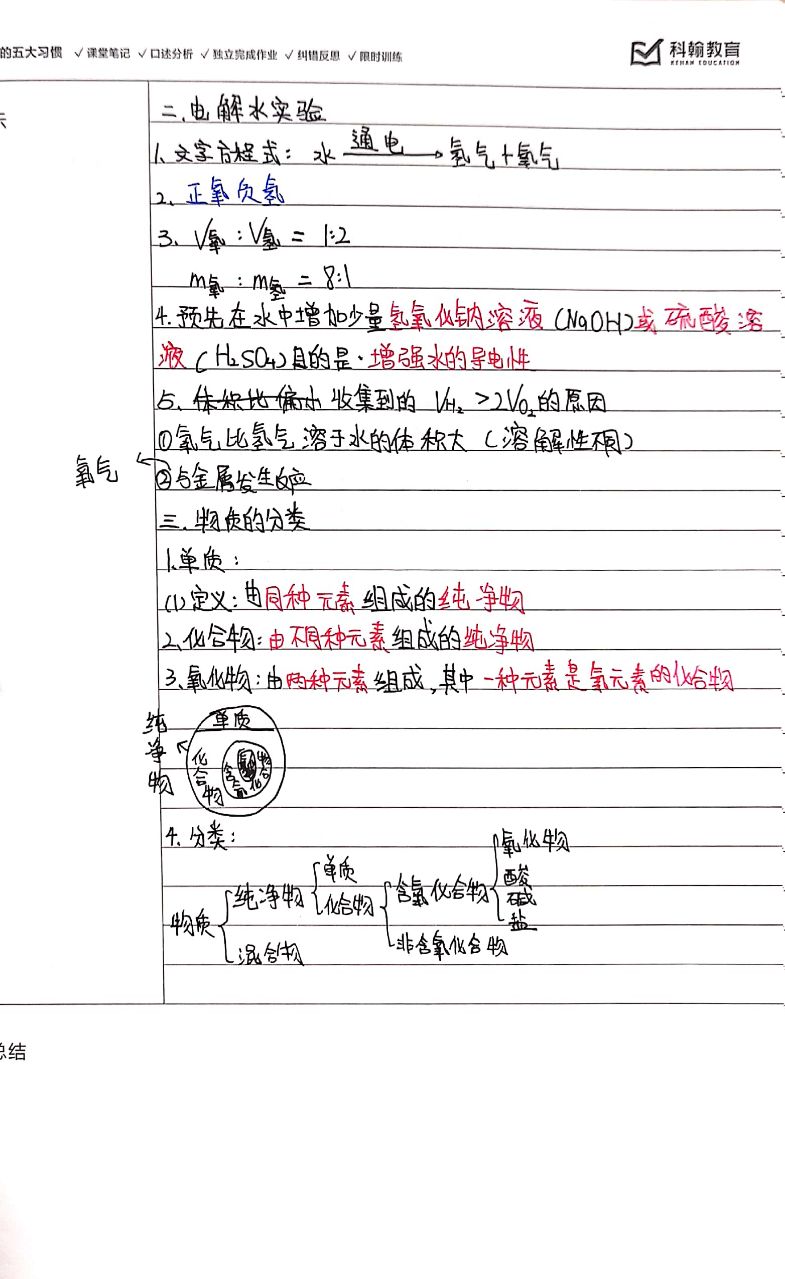 的五大习惯 ✓课堂笔记 ✓口述分析 ✓独立完成作业 ✓纠错反思 ✓限时训练
科翰教育
KEHAN EDUCATION
示
二、电解水实验
1、文字方程式：水 通电→ 氢气+氧气
2、正氧负氢
3、V氧:V氢 = 1:2
m氧:m氢 = 8:1
4.预先在水中增加少量氢氧化钠溶液(NaOH)或硫酸溶
液(H₂SO₄)目的是·增强水的导电性
5、体积比偏小 收集到的 VH₂>2VO₂的原因
①氧气比氢气溶于水的体积大(溶解性不同)
氧气 ②与金属发生反应
三、物质的分类
1.单质:
(1)定义:由同种元素组成的纯净物
2、化合物:由不同种元素组成的纯净物
3、氧化物:由两种元素组成,其中一种元素是氧元素的化合物
纯净物
单质
化合物
含氧化合物
4.分类:
氧化物
单质
酸
纯净物
化合物
含氧化合物
碱
盐
物质
混合物
非含氧化合物
总结